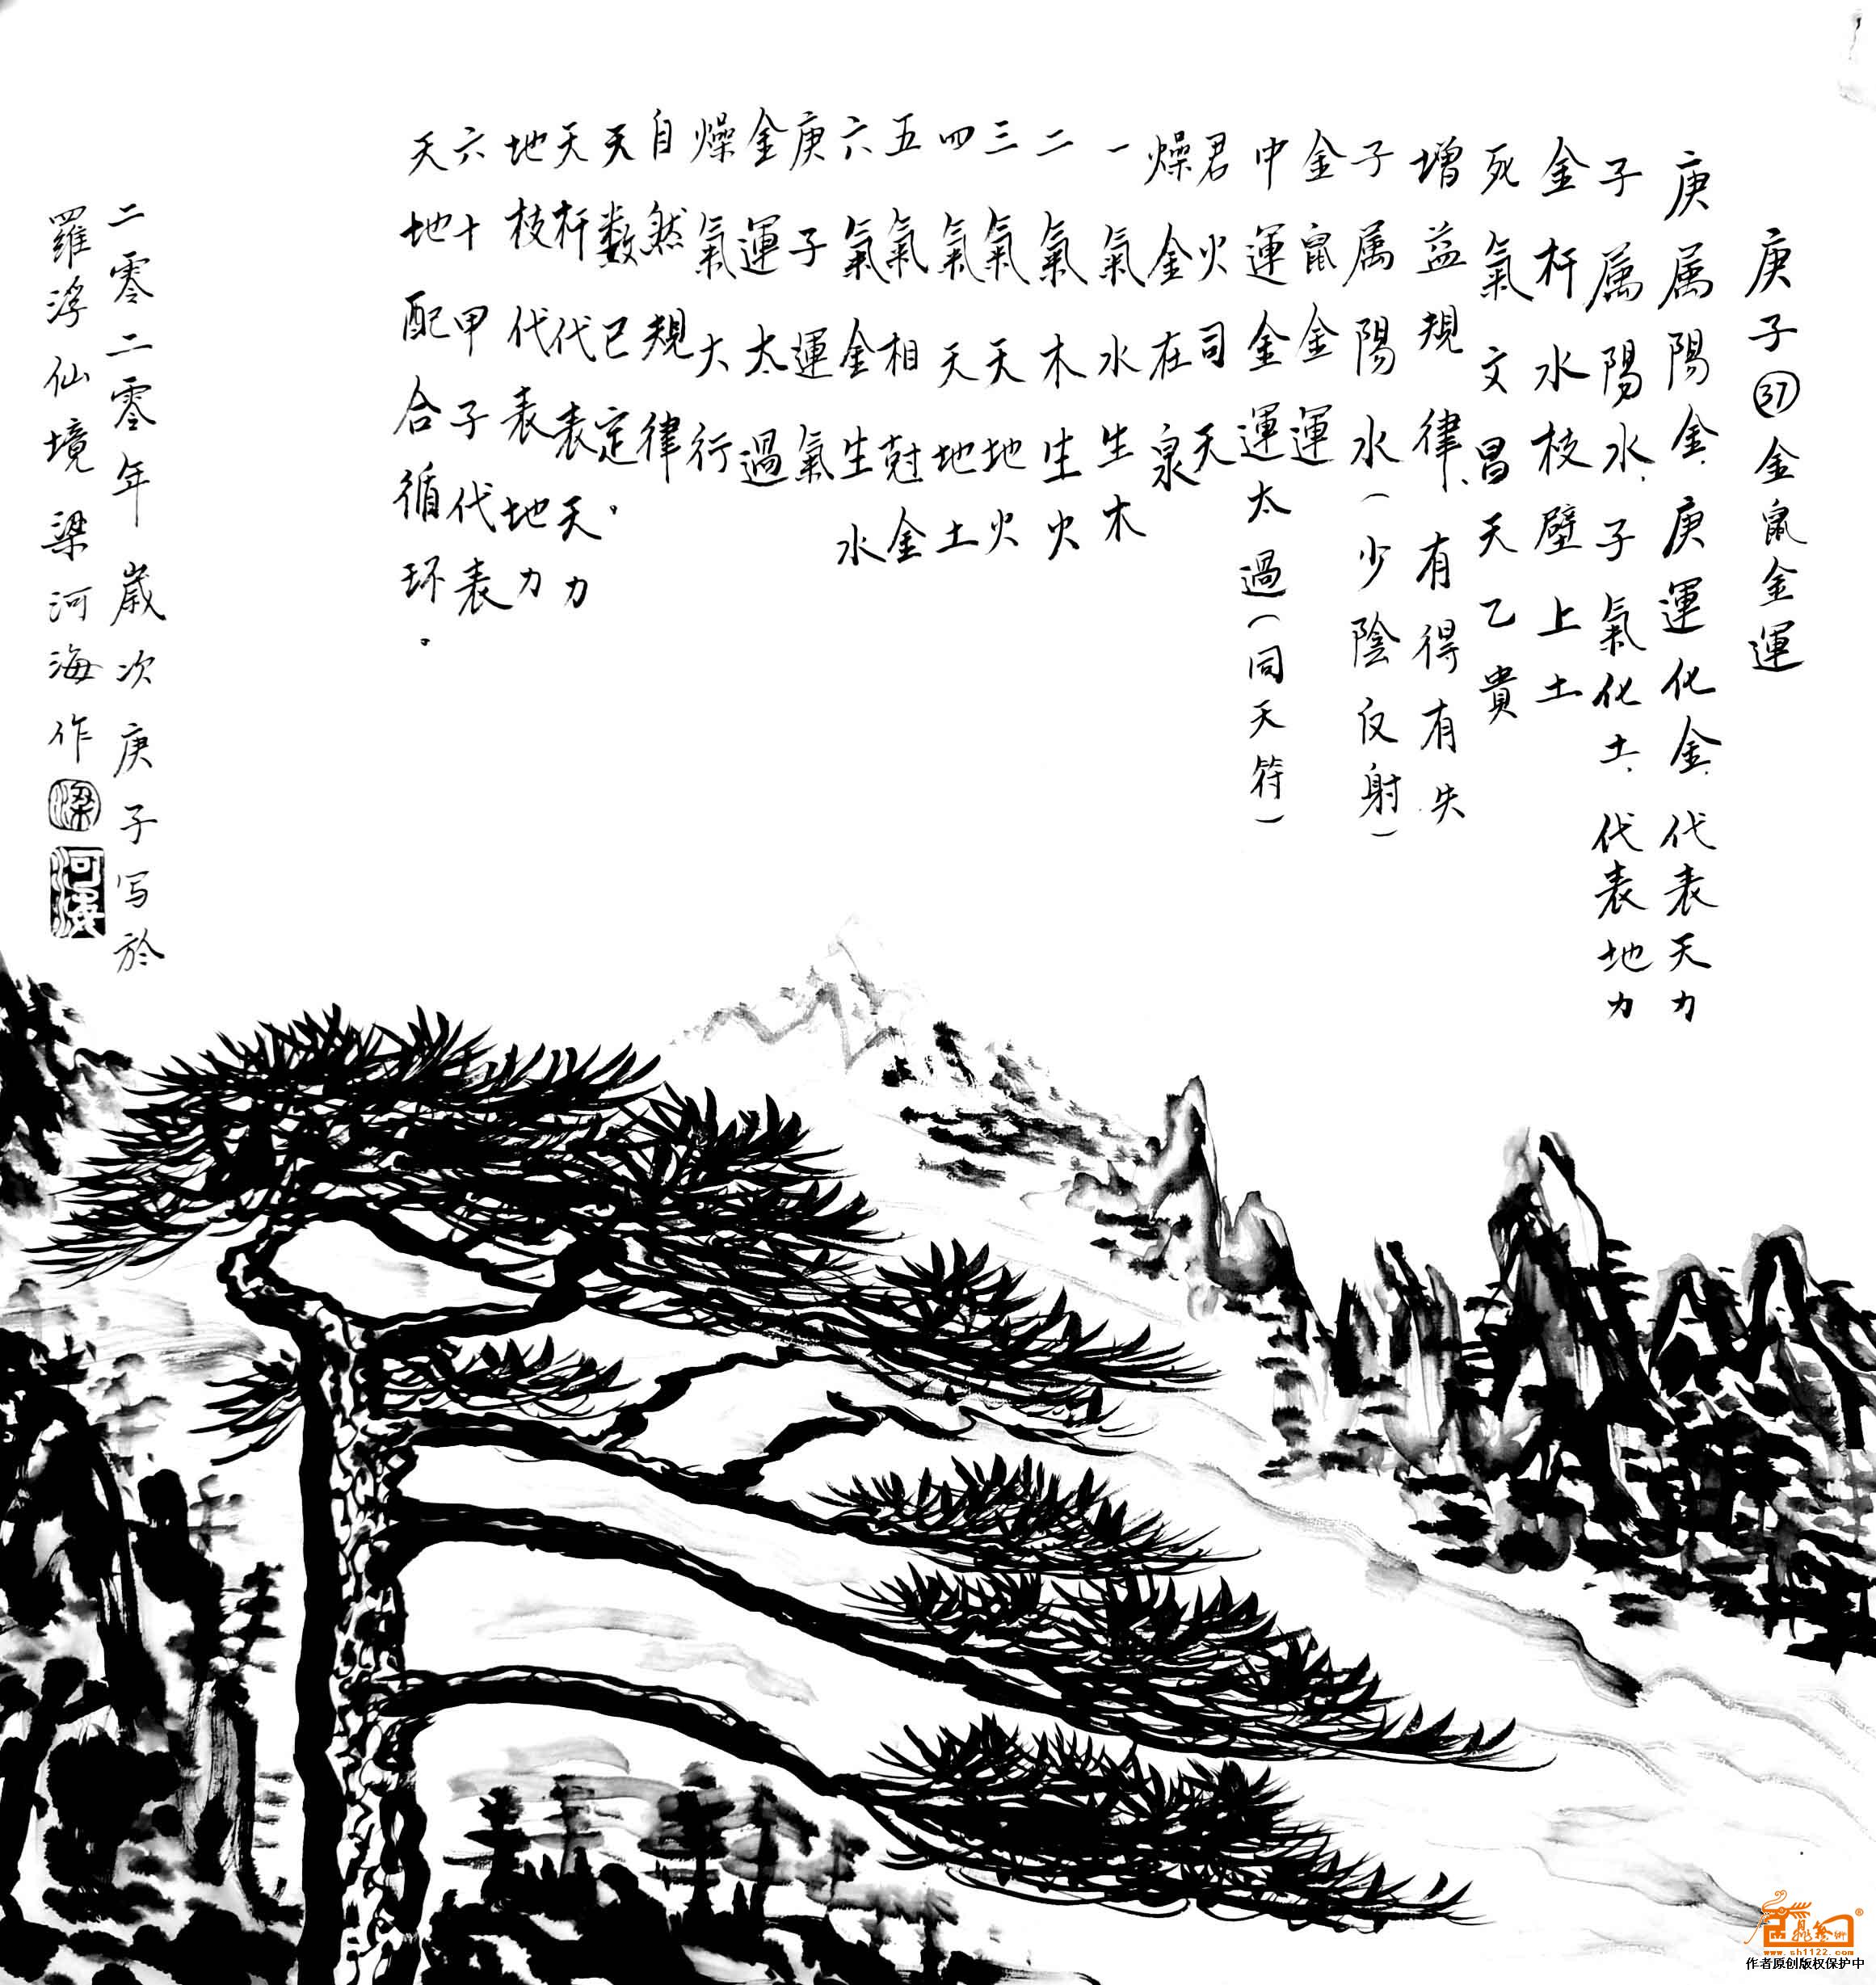 庚子㊲金鼠金運
庚属陽金、庚運化金、代表天力
子属陽水、子氣化土、代表地力
金杆水枝壁上土
死氣文昌天乙貴
增益規律、有得有失
子属陽水(少陰反射)
金鼠金運
中運金運太過(同天符)
君火司天
燥金在泉
一氣水生木
二氣木生火
三氣天地火
四氣天地土
五氣相尅金
六氣金生水
庚子運氣
金運太過
燥氣大行
自然規律
天数已定。
天杆代表天力
地枝代表地力
六十甲子代表
天地配合循环。
二零二零年歲次庚子写於
羅浮仙境梁河海作
梁
河海
®
www.sh1122.com
作者原创版权保护中